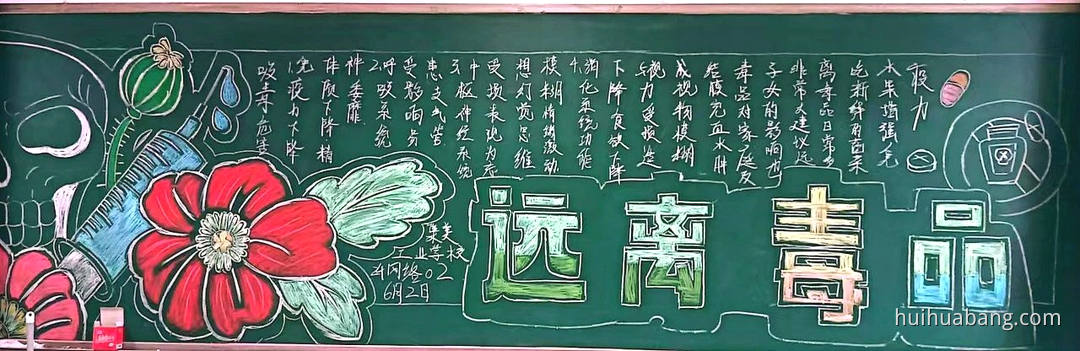 吸毒危害
1.免疫力下降
体质下降精
神萎靡
2.呼吸系统
受影响易
患支气管
3.中枢神经系统
受损表现为思
想幻觉思维
模糊情绪激动
4.消化系统功能
下降食欲下降
5.视力受损造
成视物模糊
结膜充血水肿
毒品对家庭及
子女的影响也
非常大建议远
离毒品日常多
吃新鲜蔬菜
水果增强免
疫力
远离毒品
工业学校
网络02
6月2日
huihuabang.com